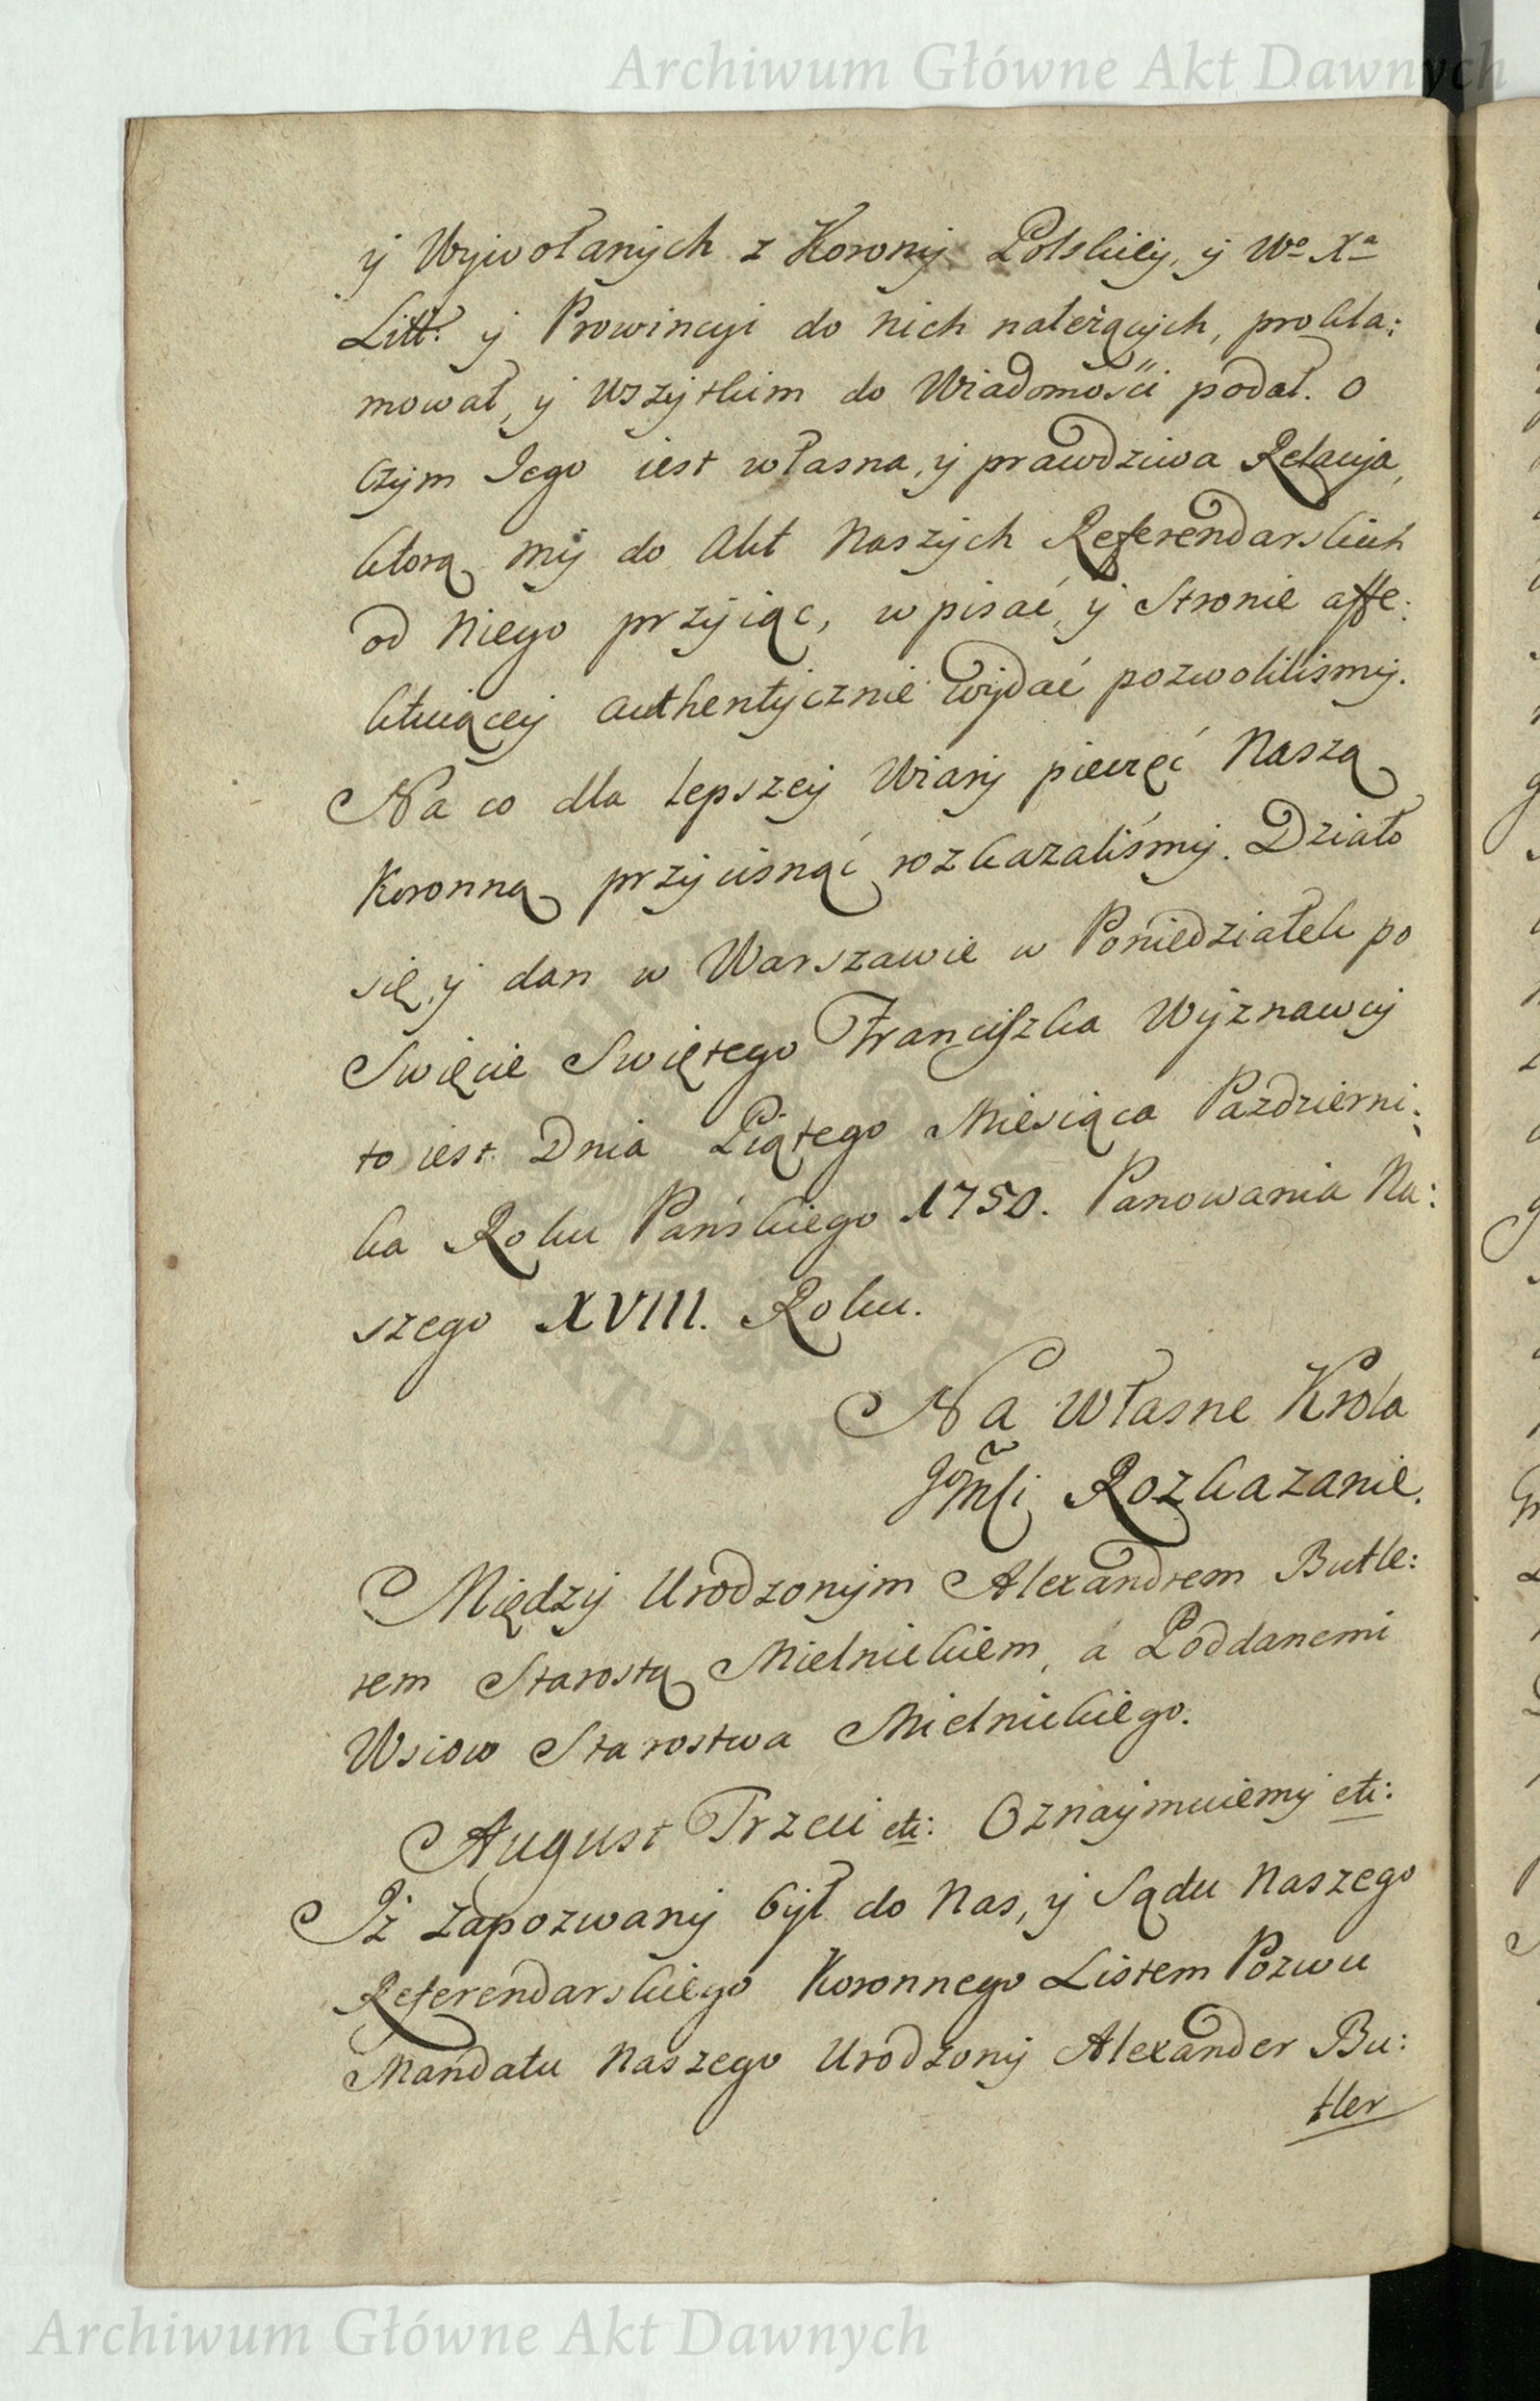 Archiwum Główne Akt Dawnych
y Wywołanych z Korony Polskiey, y Wo Xa
Litt: y Prowincyi do nich należących, prokla:
mował, y wszytkim do Wiadomości podał. O
czym Jego iest własna, y prawdziwa Relacyja,
ktorą my do Akt Naszych Referendarskich
od Niego przyiąc, wpisać, y Stronie affe:
ktuiącey authentycznie wydać pozwoliliśmy.
Na co dla lepszey Wiary pieczęć Naszą
Koronną przycisnąć rozkazaliśmy. Działo
się, y dan w Warszawie w Poniedziałek po
Swięcie Swiętego Franciszka Wyznawcy
to iest Dnia Piątego Miesiąca Pazdzierni:
ka Roku Pańskiego 1750. Panowania Na:
szego XVIII. Roku.
Na własne Krola
JoMsci Rozkazanie.
Między Urodzonym Alexandrem Butle:
rem Starostą Mielnickiem, a Poddanemi
Wsiow Starostwa Mielnickiego.
August Trzeci etc: Oznaymuiemy etc:
Iż zapozwany był do Nas, y Sądu Naszego
Referendarskiego Koronnego Listem Pozwu
Mandatu Naszego Urodzony Alexander Bu:
tler
Archiwum Główne Akt Dawnych